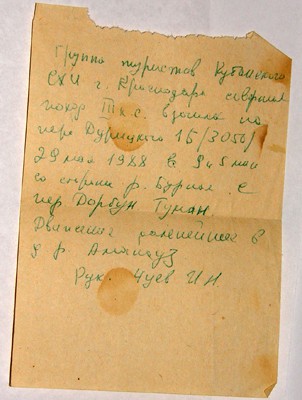 Группа туристов Кубанского
СХИ г. Краснодара совершая
поход III к.с. взошла на
пер Дурицкого 1Б (3050)
29 мая 1988 в 9 ч 5 мин
со стороны р. Бурная с
пер Дорбун Туман.
Движение дальнейшее в
д р. Аманауз
Рук. Чуев И Н